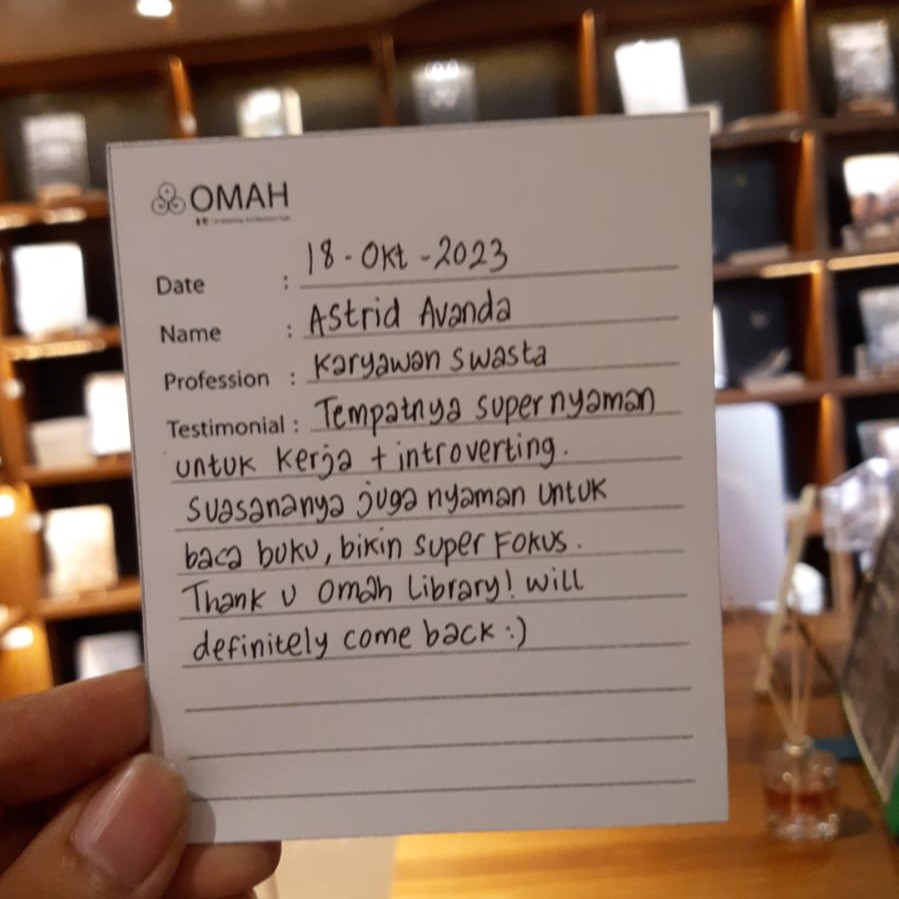 OMAH
Date : 18 - Okt - 2023
Name : Astrid Avanda
Profession : Karyawan swasta
Testimonial : Tempatnya super nyaman
untuk kerja + introverting.
suasananya juga nyaman untuk
baca buku, bikin super Fokus.
Thank u Omah Library! will
definitely come back :)